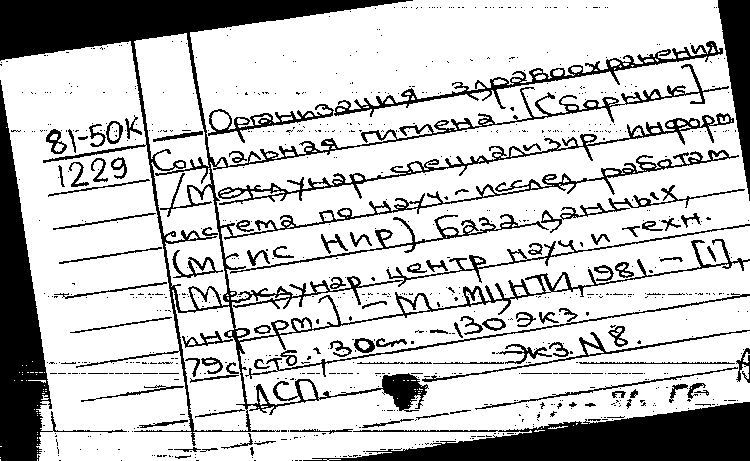 Организация здравоохранения.
81-50К
1229
Социальная гигиена: [Сборник]
/Междунар. специализир. информ.
система по науч.-исслед. работам
(МСИС НИР). База данных,
[Междунар. центр науч. и техн.
информ.]. - М.: МЦНТИ, 1981. - [1],
79с., стб.; 30см. - 130 экз.
ДСП. Экз. N 8.